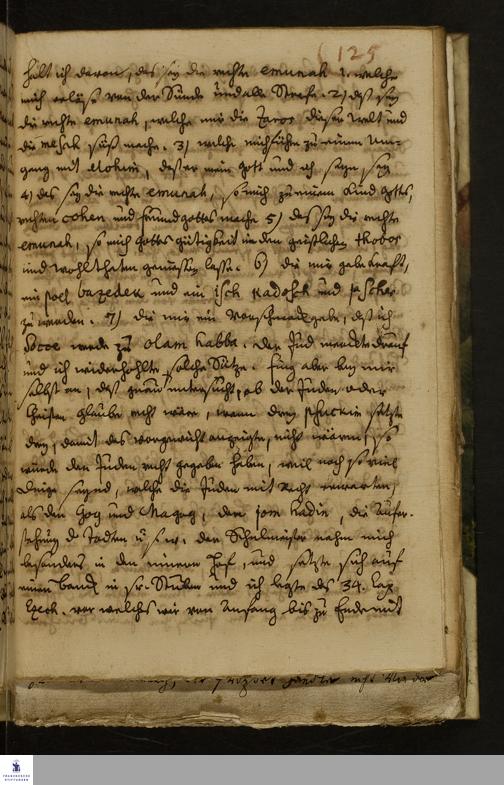 125
halt ich davon, das sey die rechte emunah 1. welche
mich erlöse von der Sünde und alle Strafe. 2) das sey
die rechte emunah, welche mir die Zaros dieser Welt und
die süß mache. 3) welche mich führe zu einem Um-
gang mit elohim, daß er mein Gott und ich seyn sey
4) das sey die rechte emunah, so mich zu einem Kind Gottes,
rechten cohen und freund gottes mache 5) das sey die rechte
emunah, so mich Gottes gütigkeit in den geistlichen thobos
und wohlthaten geniessen lasse. 6) die mir gebe kraft,
ein poel bazedek und ein isch kadosch und
zu werden. 7) die mir ein Vorschmack gebe, daß ich
Socce werde zu olam habba. der Jud
und ich wiederhohlte solche Sätze. fing aber bey mir
selbst an, daß genau untersucht, ob der Juden oder
Christen glaube recht wäre, wenn drey setzte
drey, damit das anzeigte, nicht wären, so
würde den Juden recht gegeben haben, weil noch so viel
Dinge seynd, welche die Juden mit Recht erwarten,
als den Gog und Magog, den jom hadin, die Aufer-
stehung der Todten u s. w. der Schulmeister nahm mich
besonders in den innern Hof, und setzte sich auf
einen banck in sr. Stuben und ich legte das 34. Cap
Ezech. vor welchs wir von Anfang bis zu Ende mit
FRANCKESCHE
STIFTUNGEN